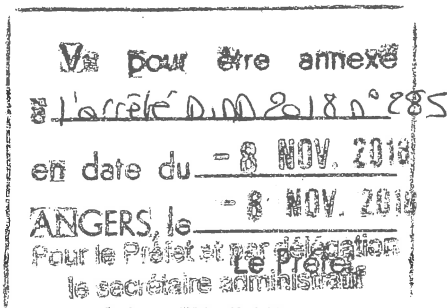 Vu pour être annexé
à l'arrêté DIDD 2018 n° 285
en date du - 8 NOV. 2018
ANGERS, le - 8 NOV. 2018
Pour le Préfet et par délégation
Le Préfet,
le secrétaire administratif